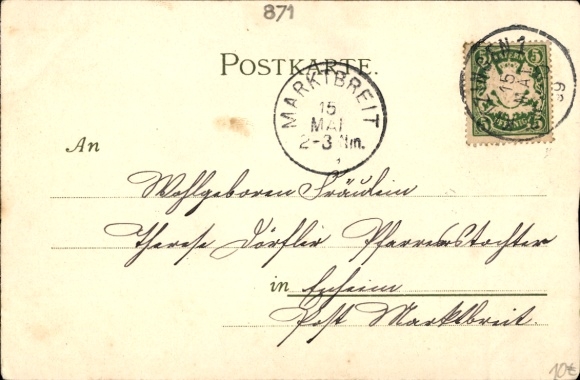 871
POSTKARTE.
5 BAYERN 5
5 5
15
MAI
99
MARKTBREIT
15
MAI
2-3 Nm.
An
Wohlgeboren Fräulein
Therese Dörfler Pfarrerstochter
in Enheim
Post Marktbreit.
10€